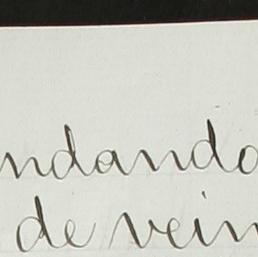 ndando
de vein